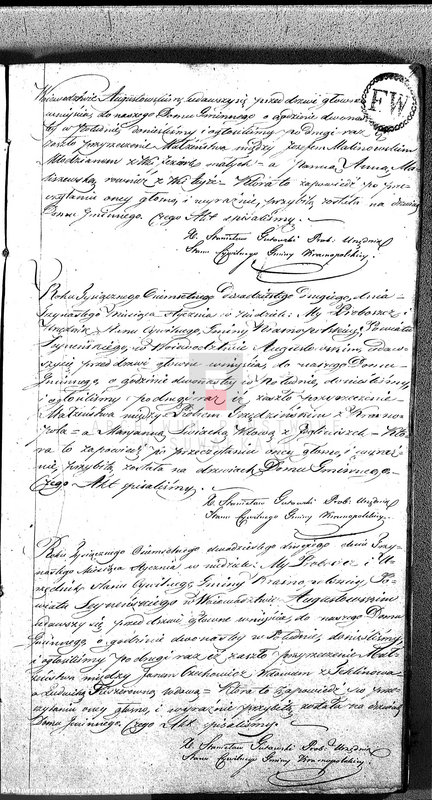 Woiewodztwie Augustowskim udawszy się przed drzwi główne
wniyścia do naszego Domu Gminnego o godzinie dwunas
tey w Południe, donieśliśmy i ogłosiliśmy po drugi raz iż
zaszło przyrzeczenie Małżeństwa między Jozefem Malinowskim
Młodzianem z Wsi małych = a Panną Anną Ma
również z Wsi = Ktora to zapowiedź po prze
czytaniu oney głośno, i wyraźnie, przybitą została na drzwiach
Domu Gminnego. Czego Akt spisaliśmy.
X. Stanisław Gutowski Prob. Urzędnik
Stanu Cywilnego Gminy Krasnopolskiey.
FW
Roku Tysiącznego Ośmsetnego dwudziestego drugiego, dnia
Trzynastego Miesiąca Stycznia w Niedzielę: My Proboszcz i
Urzędnik Stanu Cywilnego Gminy Krasnopolskiey, Powiatu
Seyneńskiego, w Woiewodztwie Augustowskim, udaw
szysię przed drzwi główne wniyścia, do naszego Domu
Gminnego, o godzinie dwunastey w Południe, donieśliśmy,
i ogłosiliśmy po drugi raz iż zaszło przyrzeczenie
Małżeństwa między z Krasno
pola = a Maryanną Wdową z = Kto
ra to zapowiedź po przeczytaniu oney głośno, i wyraź
nie, przybitą została na drzwiach Domu Gminnego.
Czego Akt spisaliśmy.
X. Stanisław Gutowski Prob. Urzędnik
Stanu Cywilnego Gminy Krasnopolskiey.
Roku Tysiącznego Ośmsetnego dwudziestego drugiego dnia Trzy
nastego Miesiąca Stycznia w Niedzielę: My Proboszcz i U
rzędnik Stanu Cywilnego Gminy Krasnopolskiey, Po
wiatu Seyneńskiego w Woiewodztwie Augustowskim
udawszy się przed drzwi główne wniyścia, do naszego Domu
Gminnego, o godzinie dwunastey w Południe, donieśliśmy,
i ogłosiliśmy po drugi raz iż zaszło przyrzeczenie Mał
żeństwa między Janem Wdowcem z
a Ludwiką Wdową = Ktora to zapowiedź po prze
czytaniu oney głośno, i wyraźnie przybitą została na drzwiach
Domu Gminnego. Czego Akt spisaliśmy.
X. Stanisław Gutowski Prob. Urzędnik
Stanu Cywilnego Gminy Krasnopolskiey.
Archiwum Państwowe w Suwałkach